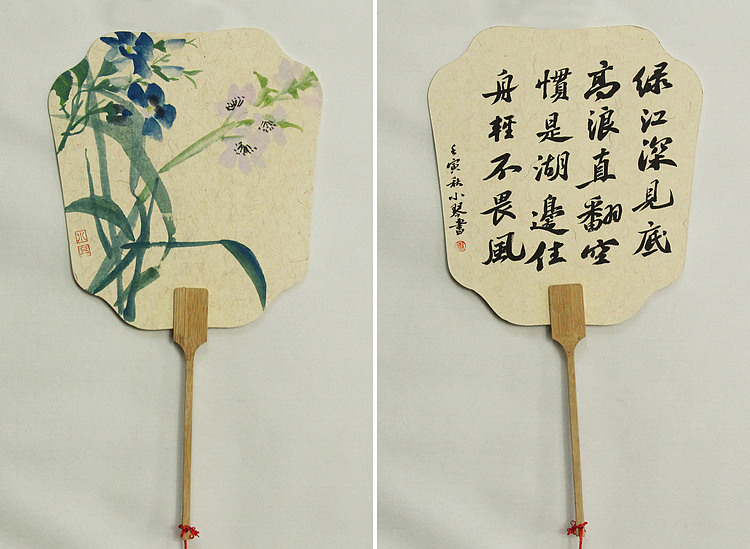 绿江深見底
高浪直翻空
慣是湖邊住
舟輕不畏風
壬寅秋小琴書